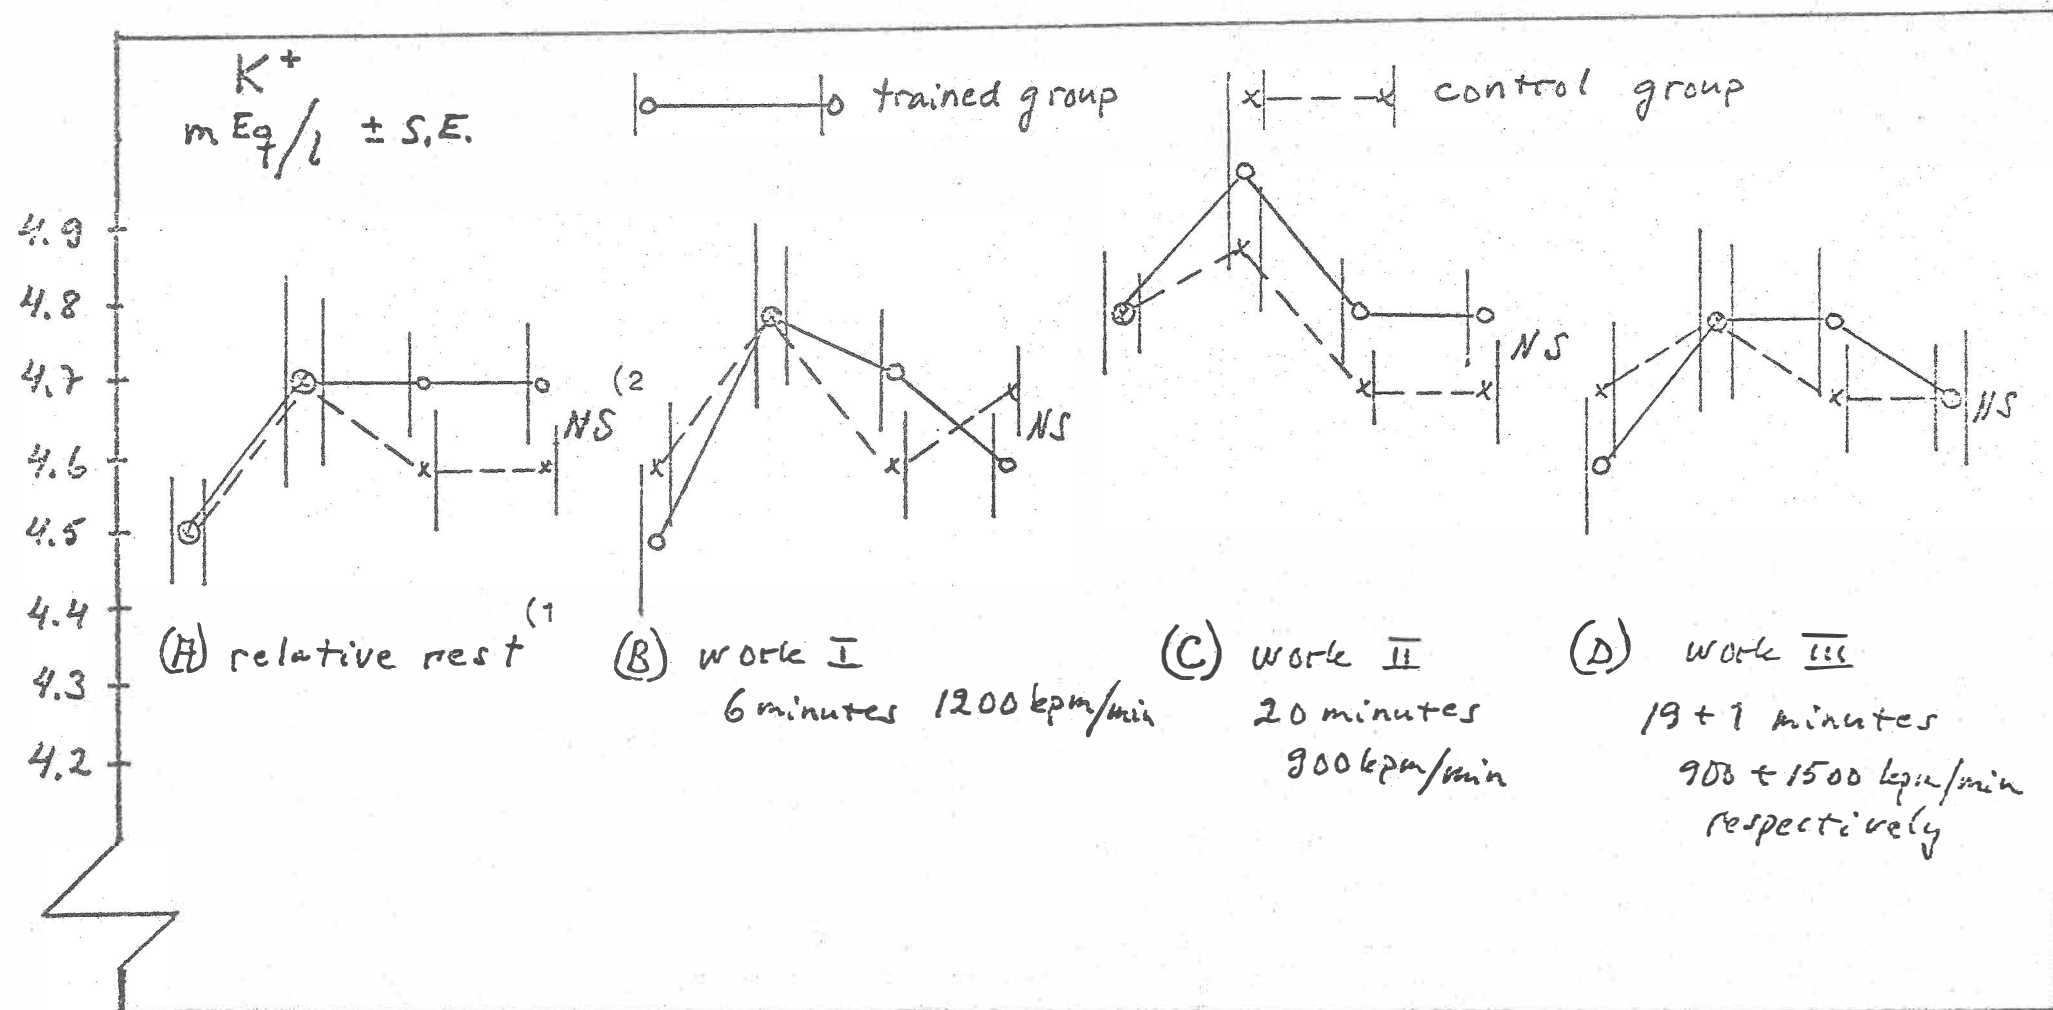 K+
mEq/l ± S.E.
trained group
control group
4.9
4.8
4.7
4.6
4.5
4.4
4.3
4.2
NS (2
NS
NS
NS
(A) relative rest (1
(B) work I
6 minutes 1200 kpm/min
(C) work II
20 minutes
900 kpm/min
(D) work III
19 + 1 minutes
900 + 1500 kpm/min
respectively